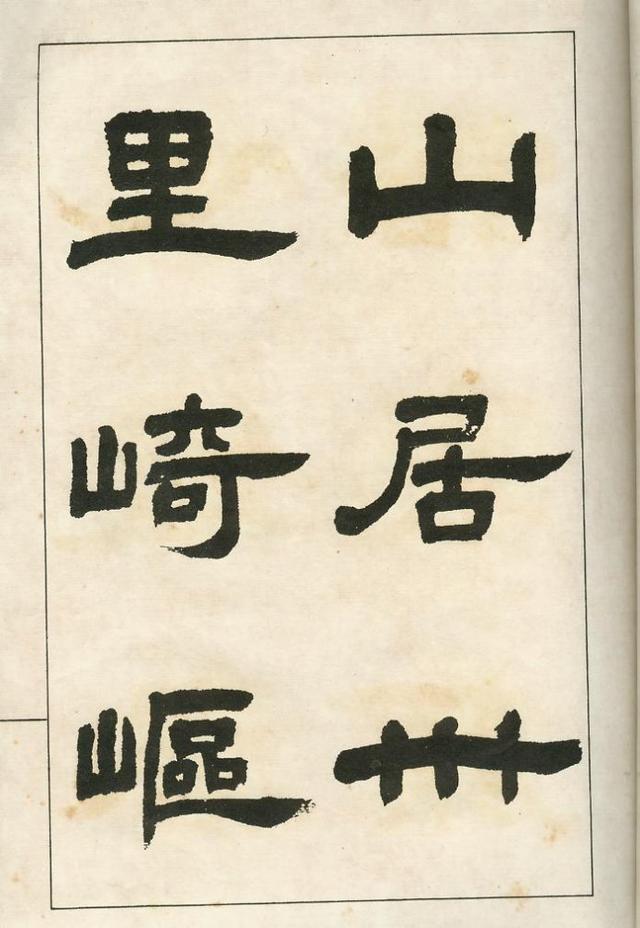 山居卅
里崎嶇